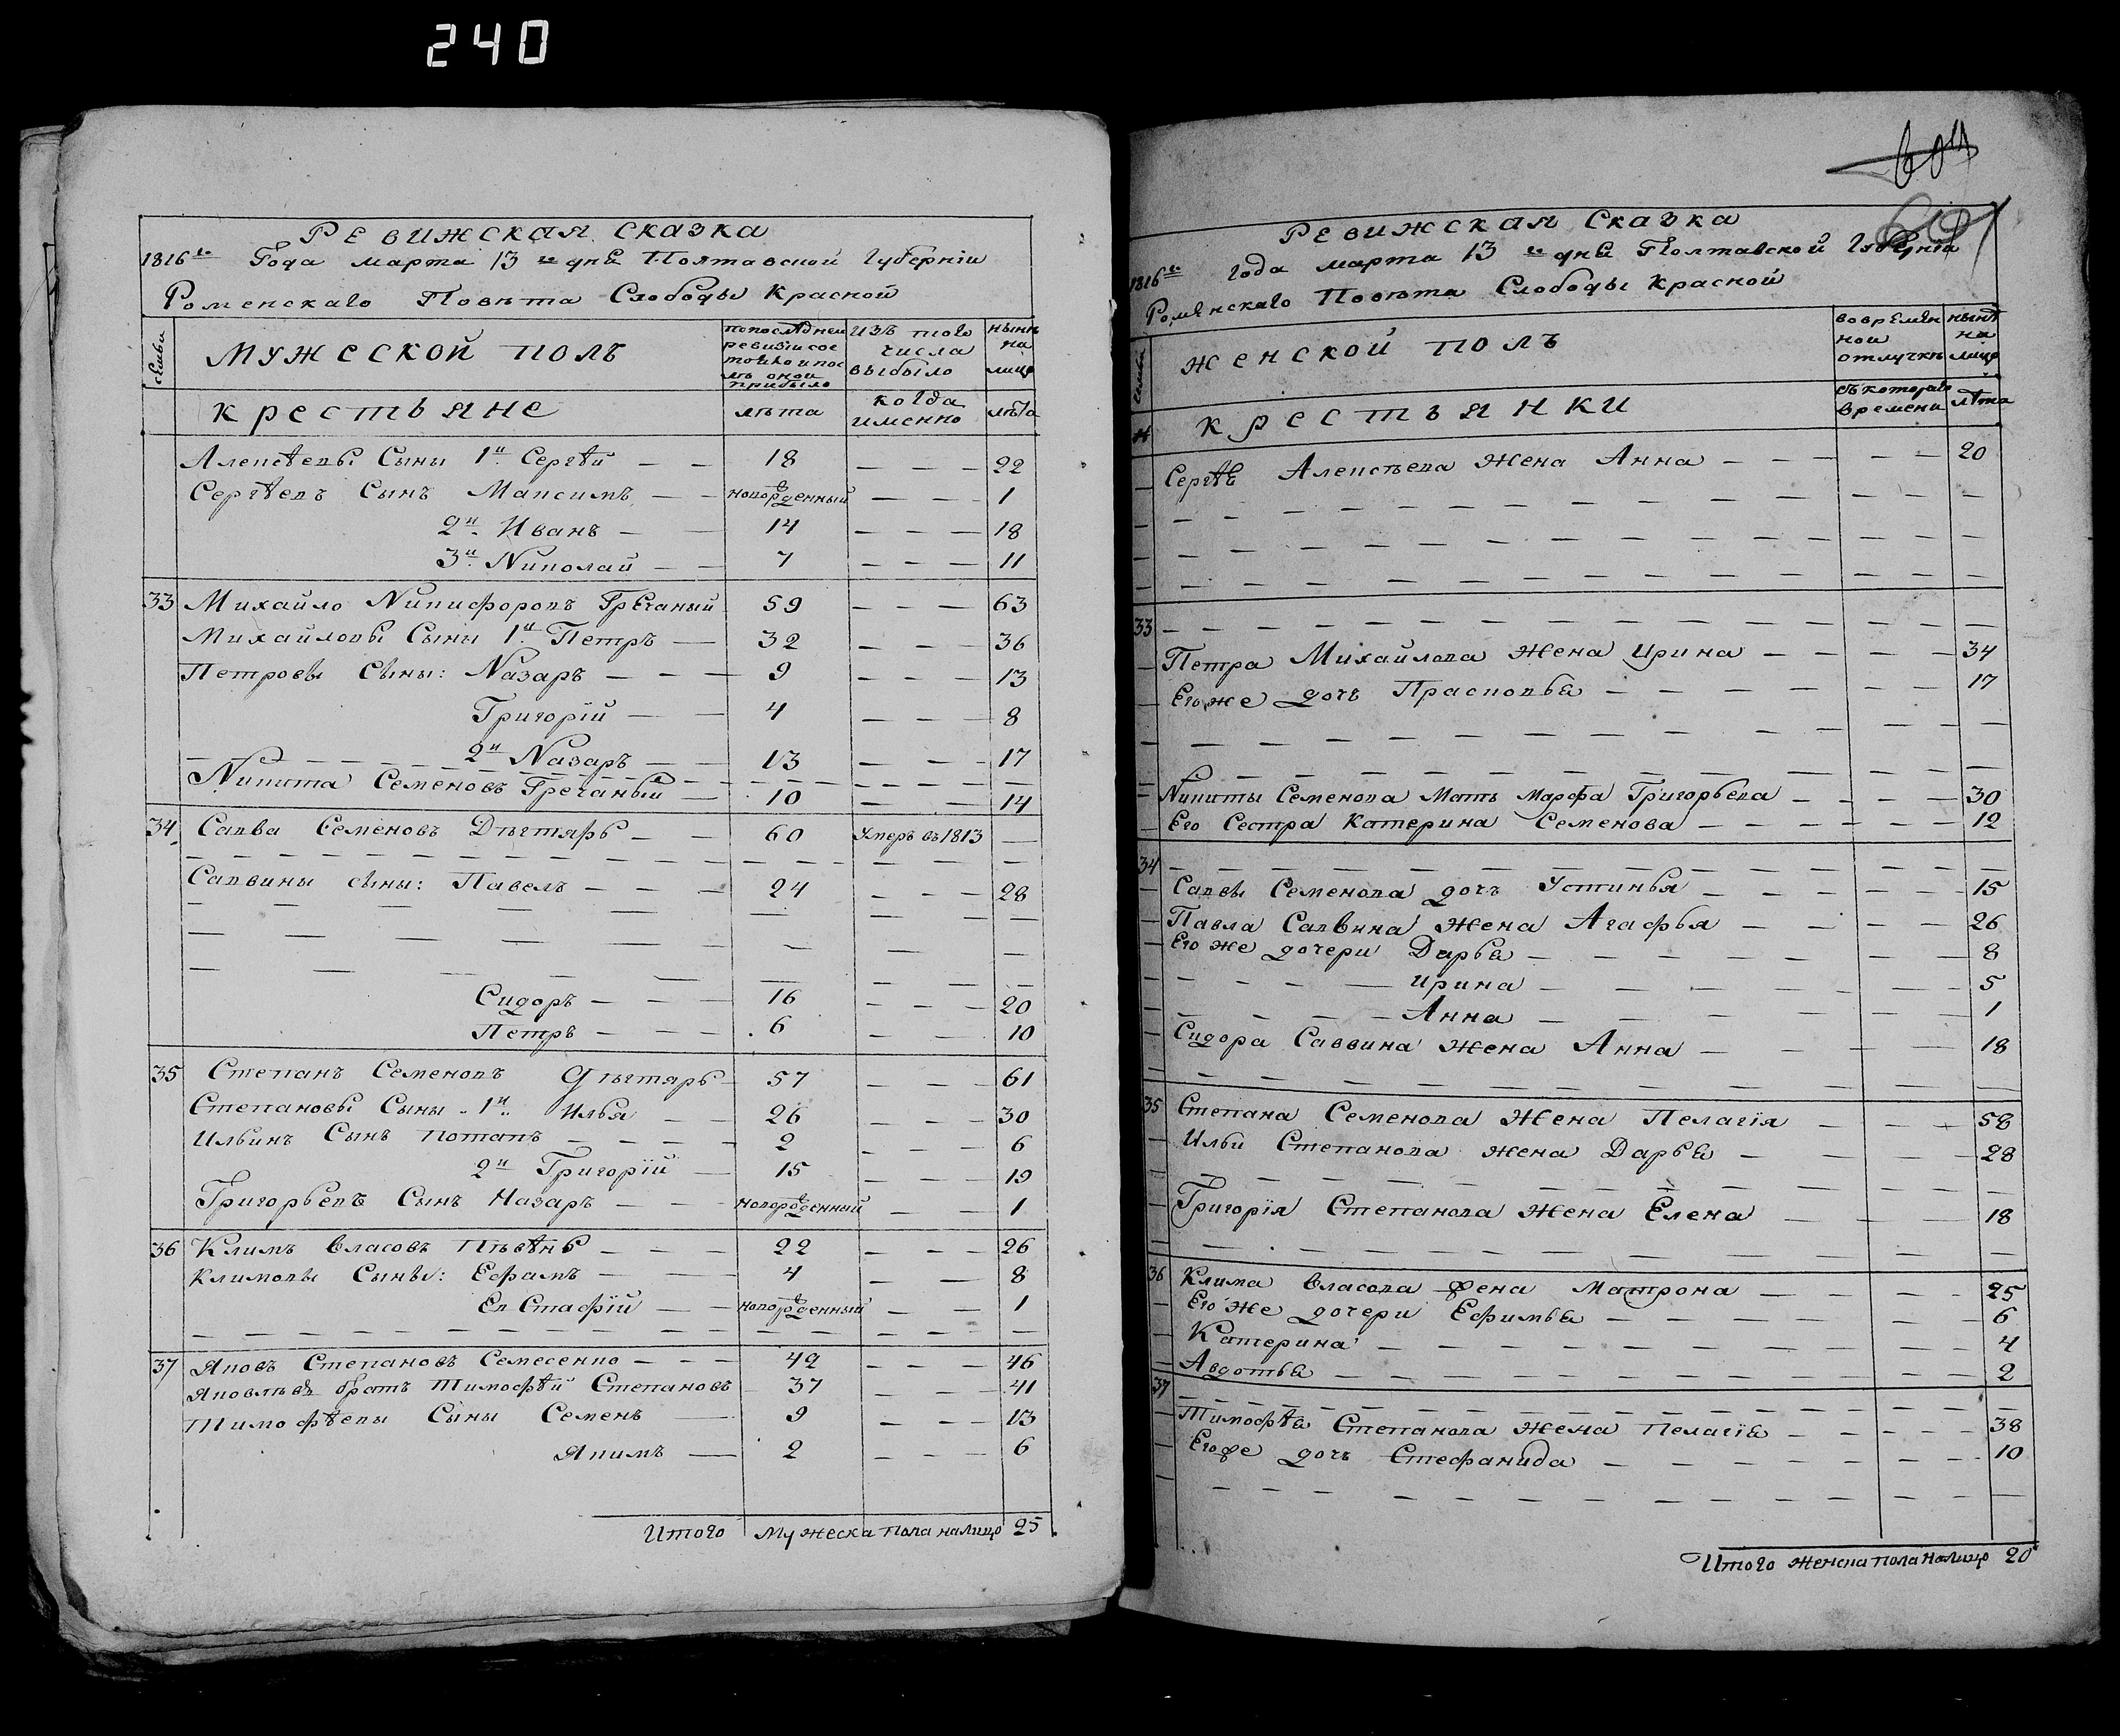 240
Ревижская сказка
1816го Года марта 13 го дня Полтавской Губерніи
Роменскаго Повѣта Слободы Красной
семьи
Мужеской полъ
по последней ревизіи состояло и послѣ оной прибыло
изъ того числа выбыло
нынѣ на лицо
крестьяне
лѣта
когда именно
лѣта
Алексѣевы Сыны 1й Сергѣй — — 18 — — — 22
Сергѣевъ Сынъ Максимъ — — новорожденный — — — 1
2й Иванъ — — 14 — — — 18
3й Николай — — 7 — — — 11
33 Михайло Никифоровъ Гречаный 59 — — — 63
Михайловы Сыны 1й Петръ — 32 — — — 36
Петровы сыны: Назаръ — — — 9 — — — 13
Григорій — — 4 — — — 8
2й Назаръ — — 13 — — — 17
Никита Семеновъ Гречаный — 10 — — 14
34 Савва Семеновъ Дѣгтярь — — 60 Умеръ въ 1813 —
Саввины сыны: Павелъ — — — 24 — — — 28
Сидоръ — — — 16 — — — 20
Петръ — — — 6 — — 10
35 Степанъ Семеновъ Дѣгтярь 57 — — — 61
Степановы Сыны 1й Илья — — 26 — — — 30
Ильинъ Сынъ Потапъ — — — — 2 — — — 6
2й Григорій — 15 — — — 19
Григорьевъ Сынъ Назаръ — — — новорожденный — — 1
36 Климъ Власовъ Пѣвѣнь — — — 22 — — — 26
Климовы Сыны: Ефимъ — — — 4 — — 8
Евстафій — — новорожденный — — 1
37 Яковъ Степановъ Семесенко — — — 42 — — — 46
Яковлевъ братъ Тимофѣй Степановъ 37 — — — 41
Тимофѣевы Сыны Семенъ — 9 — — — 13
Якимъ — 2 — — — 6
Итого Мужеска пола налицо 25
Ревижская Сказка
1816го Года марта 13 го дня Полтавской Губерніи
Роменскаго Повѣта Слободы Красной
семьи
женской полъ
во временной отлучкѣ
нынѣ на лицо
№
крестьянки
съ котораго времени
лѣта
Сергѣя Алексѣева Жена Анна — — — — — 20
33
Петра Михайлова Жена Ирина — — — — 34
Егоже дочь Прасковья — — — — — — 17
Никиты Семенова Мать Марфа Григорьева — — — — 30
Его Сестра Катерина Семенова — — — — — — 12
34
Саввы Семенова дочь Устинья — — — — — 15
Павла Саввина Жена Агафья — — — — 26
Его же дочери Дарья — — — — — — 8
Ирина — — — — — — 5
Анна — — — — — — 1
Сидора Саввина Жена Анна — — — — 18
35 Степана Семенова Жена Пелагія — — — 58
Ильи Степанова Жена Дарья — — — — 28
Григорія Степанова Жена Елена — — — 18
36 Клима Власова жена Матрона — — — — 25
Его же дочери Ефимья — — — — — — 6
Катерина — — — — — — 4
Авдотья — — — — — — 2
37
Тимофѣя Степанова Жена Пелагія — — — — — 38
Егоже дочь Стефанида — — — — — — 10
Итого Женска пола налицо 20